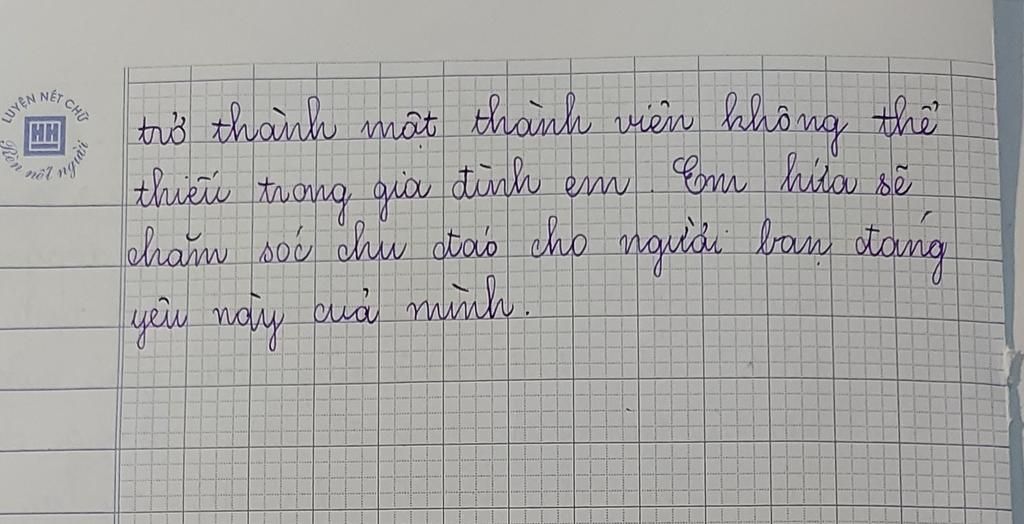 LUYỆN NÉT CHỮ
HH
Rèn nết người
trở thành một thành viên không thể
thiếu trong gia đình em. Em hứa sẽ
chăm sóc chu đáo cho người bạn đáng
yêu này của mình.